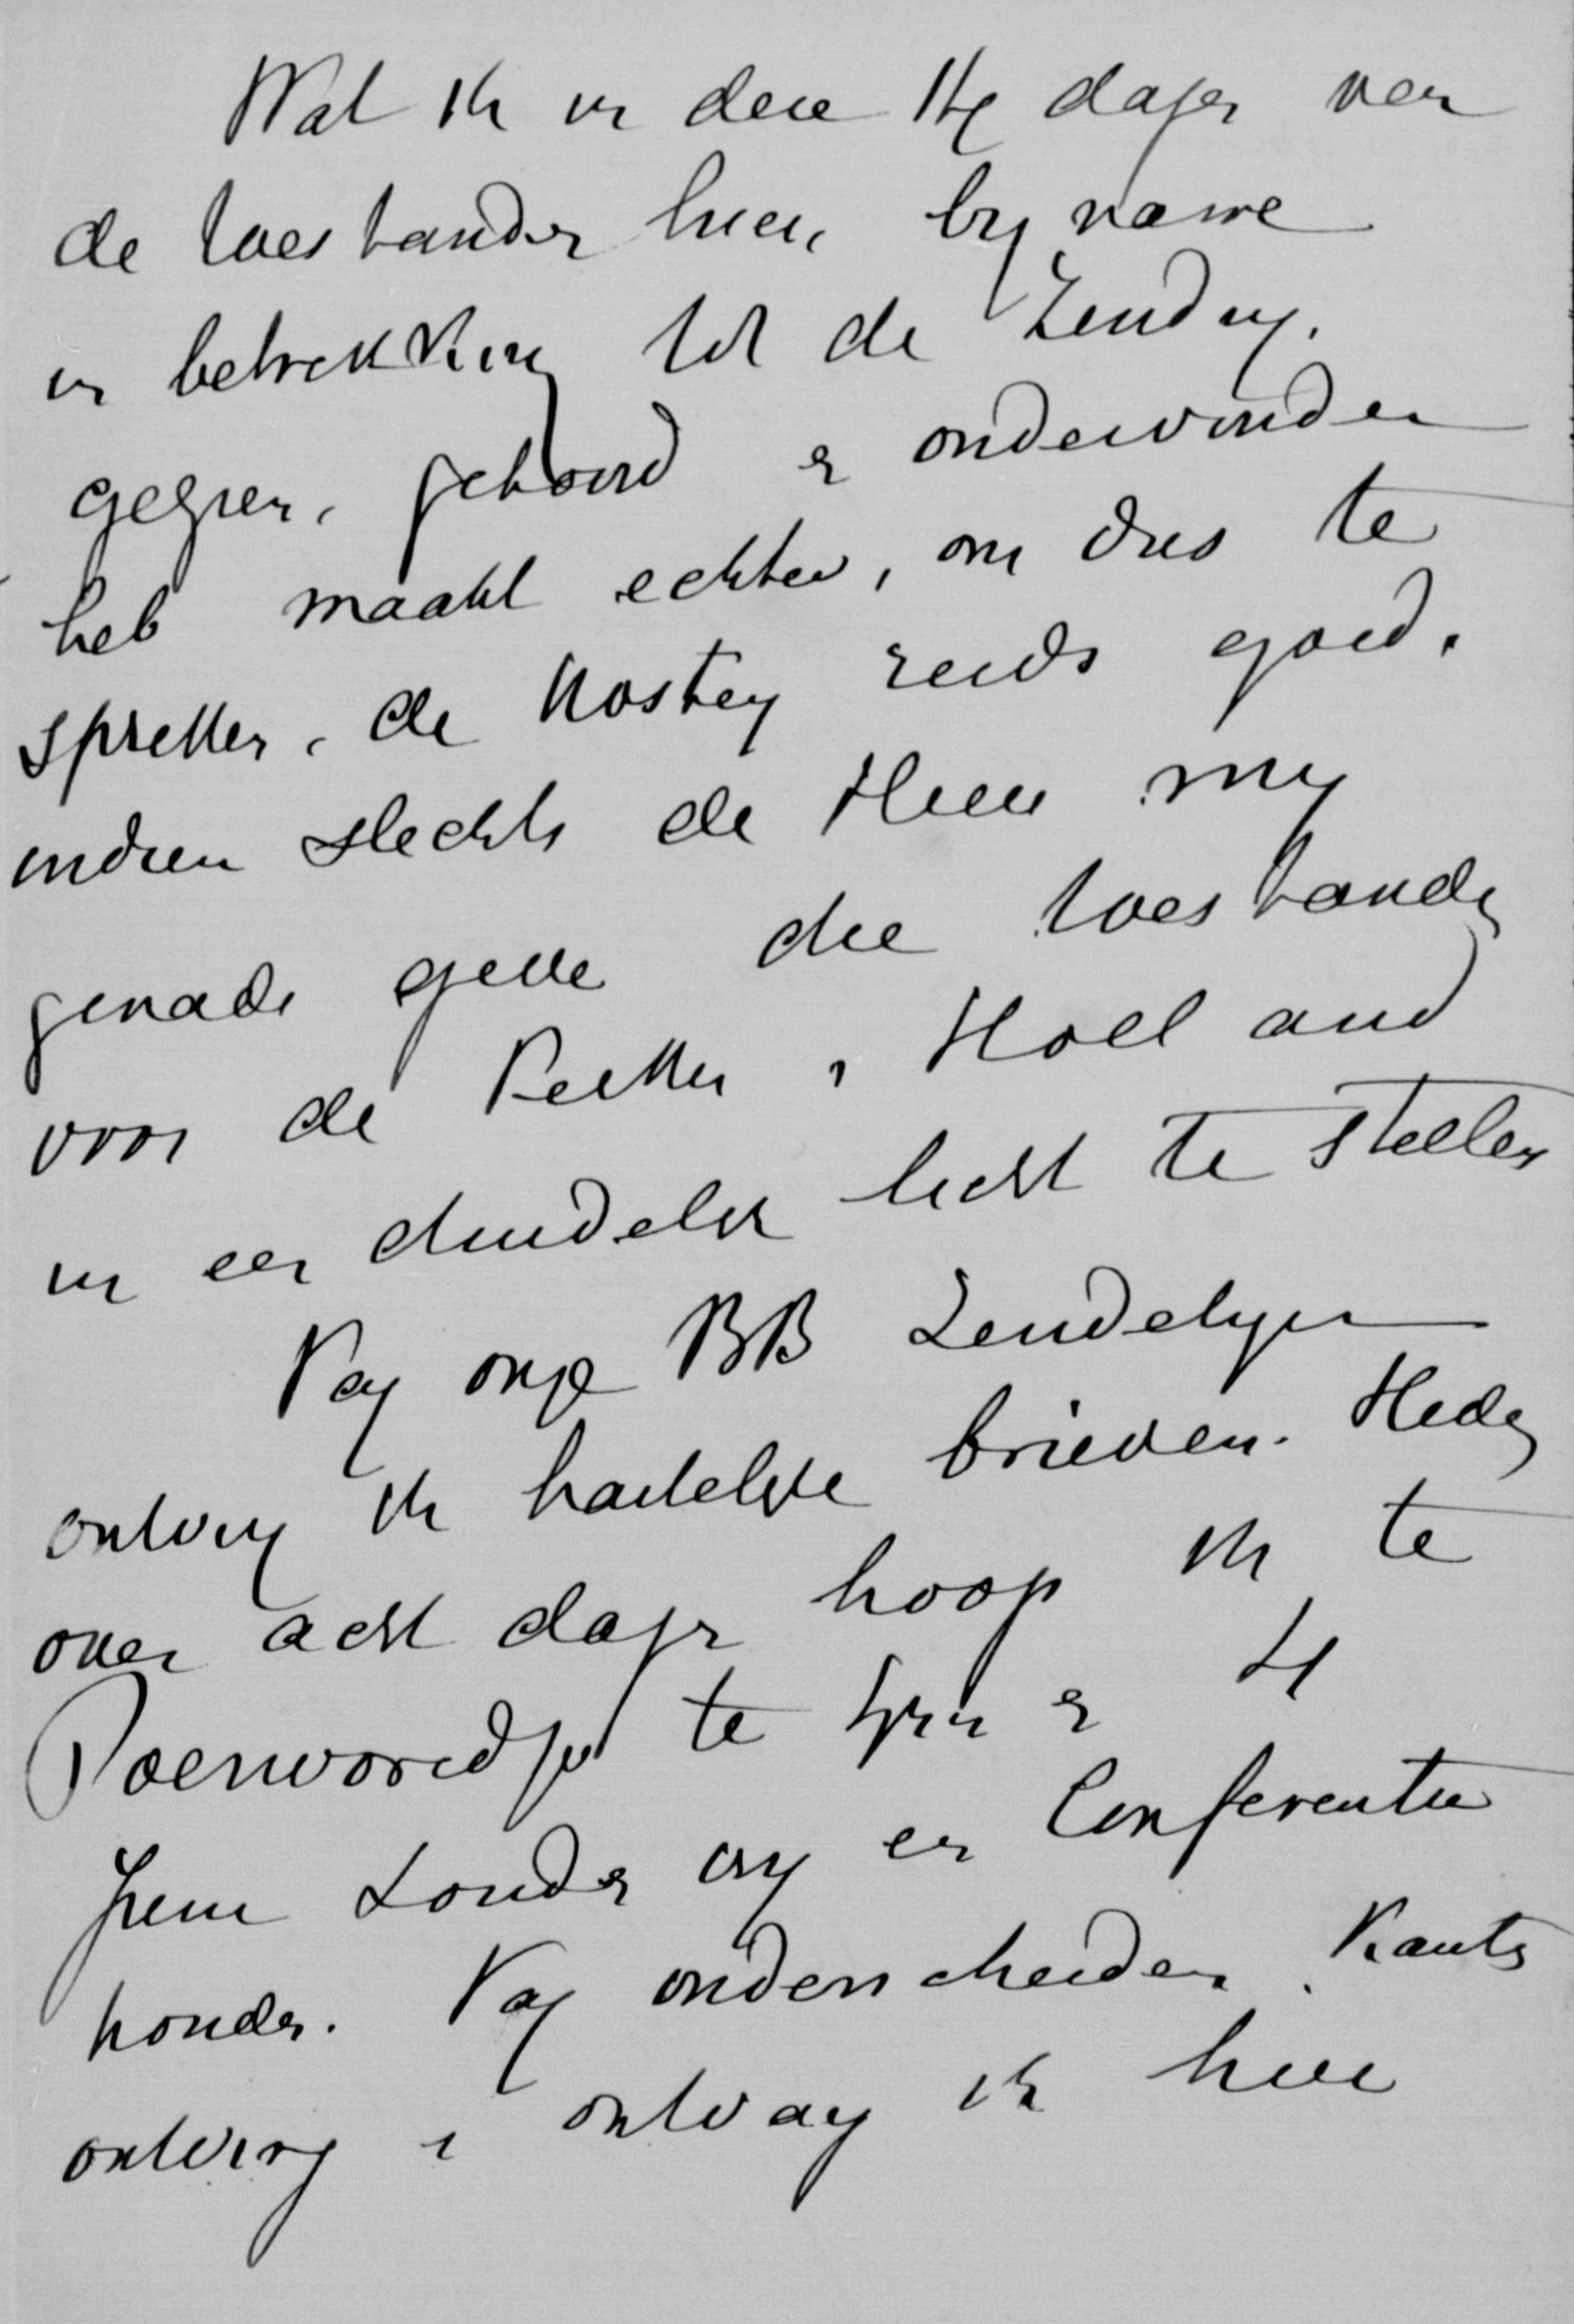 Wat ik in deze 14 dagen van
de toestanden hier, by name
in betrekking tot de Zending,
gezien, gehoord en ondervonden
heb maakt echter, om dus te
spreken, de kosten reeds goed,
indien slechts de Heere my
genade geve die toestanden
voor de Kerken in Holland
in een duidelijk licht te stellen
Van onze BB Zendelingen
ontving ik hartelijke brieven. Heden
over acht dagen hoop ik te
Poerworedjo te zyn en
zoude wy een Conferentie
houden. Van onderscheiden kanten
ontving en ontvang ik hier